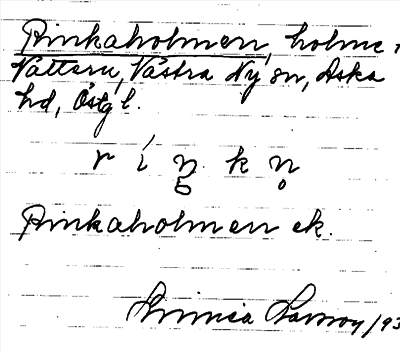 Rinkaholmen, holme i
Vättern, Västra Ny sn, Aska
hd, Östg l.
r í ŋ̥ k n̥
Rinkaholmen ek.
/193